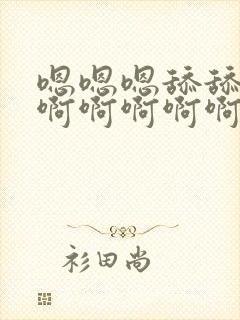 嗯嗯嗯舔舔
啊啊啊啊啊
衫田尚